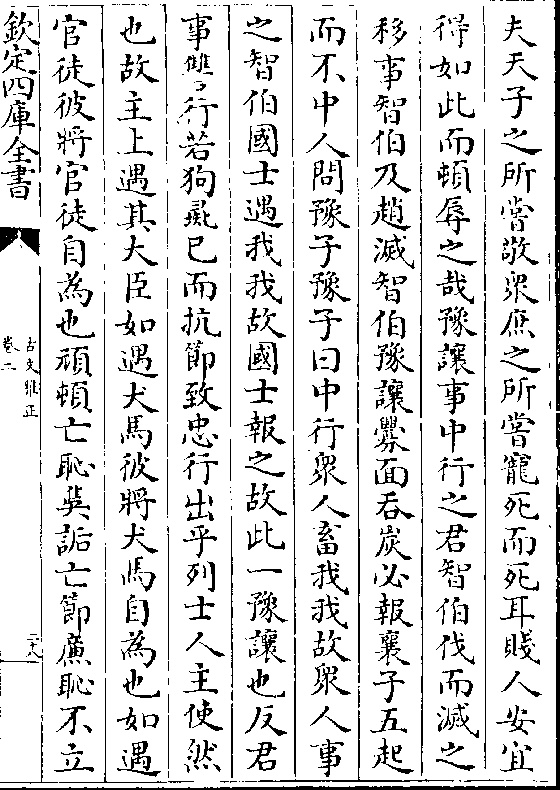 夫天子之所嘗敬衆庶之所嘗寵死而死耳賤人安宜
得如此而頓辱之哉豫讓事中行之君智伯伐而滅之
移事智伯及趙滅智伯豫讓釁面吞炭必報襄子五起
而不中人問豫子豫子曰中行衆人畜我我故衆人事
之智伯國士遇我我故國士報之故此一豫讓也反君
事讎行若狗彘已而抗節致忠行出乎列士人主使然
也故主上遇其大臣如遇犬馬彼將犬馬自為也如遇
官徒彼將官徒自為也頑頓亡恥奊詬亡節廉恥不立
欽定四庫全書
古文雅正
卷二
二八